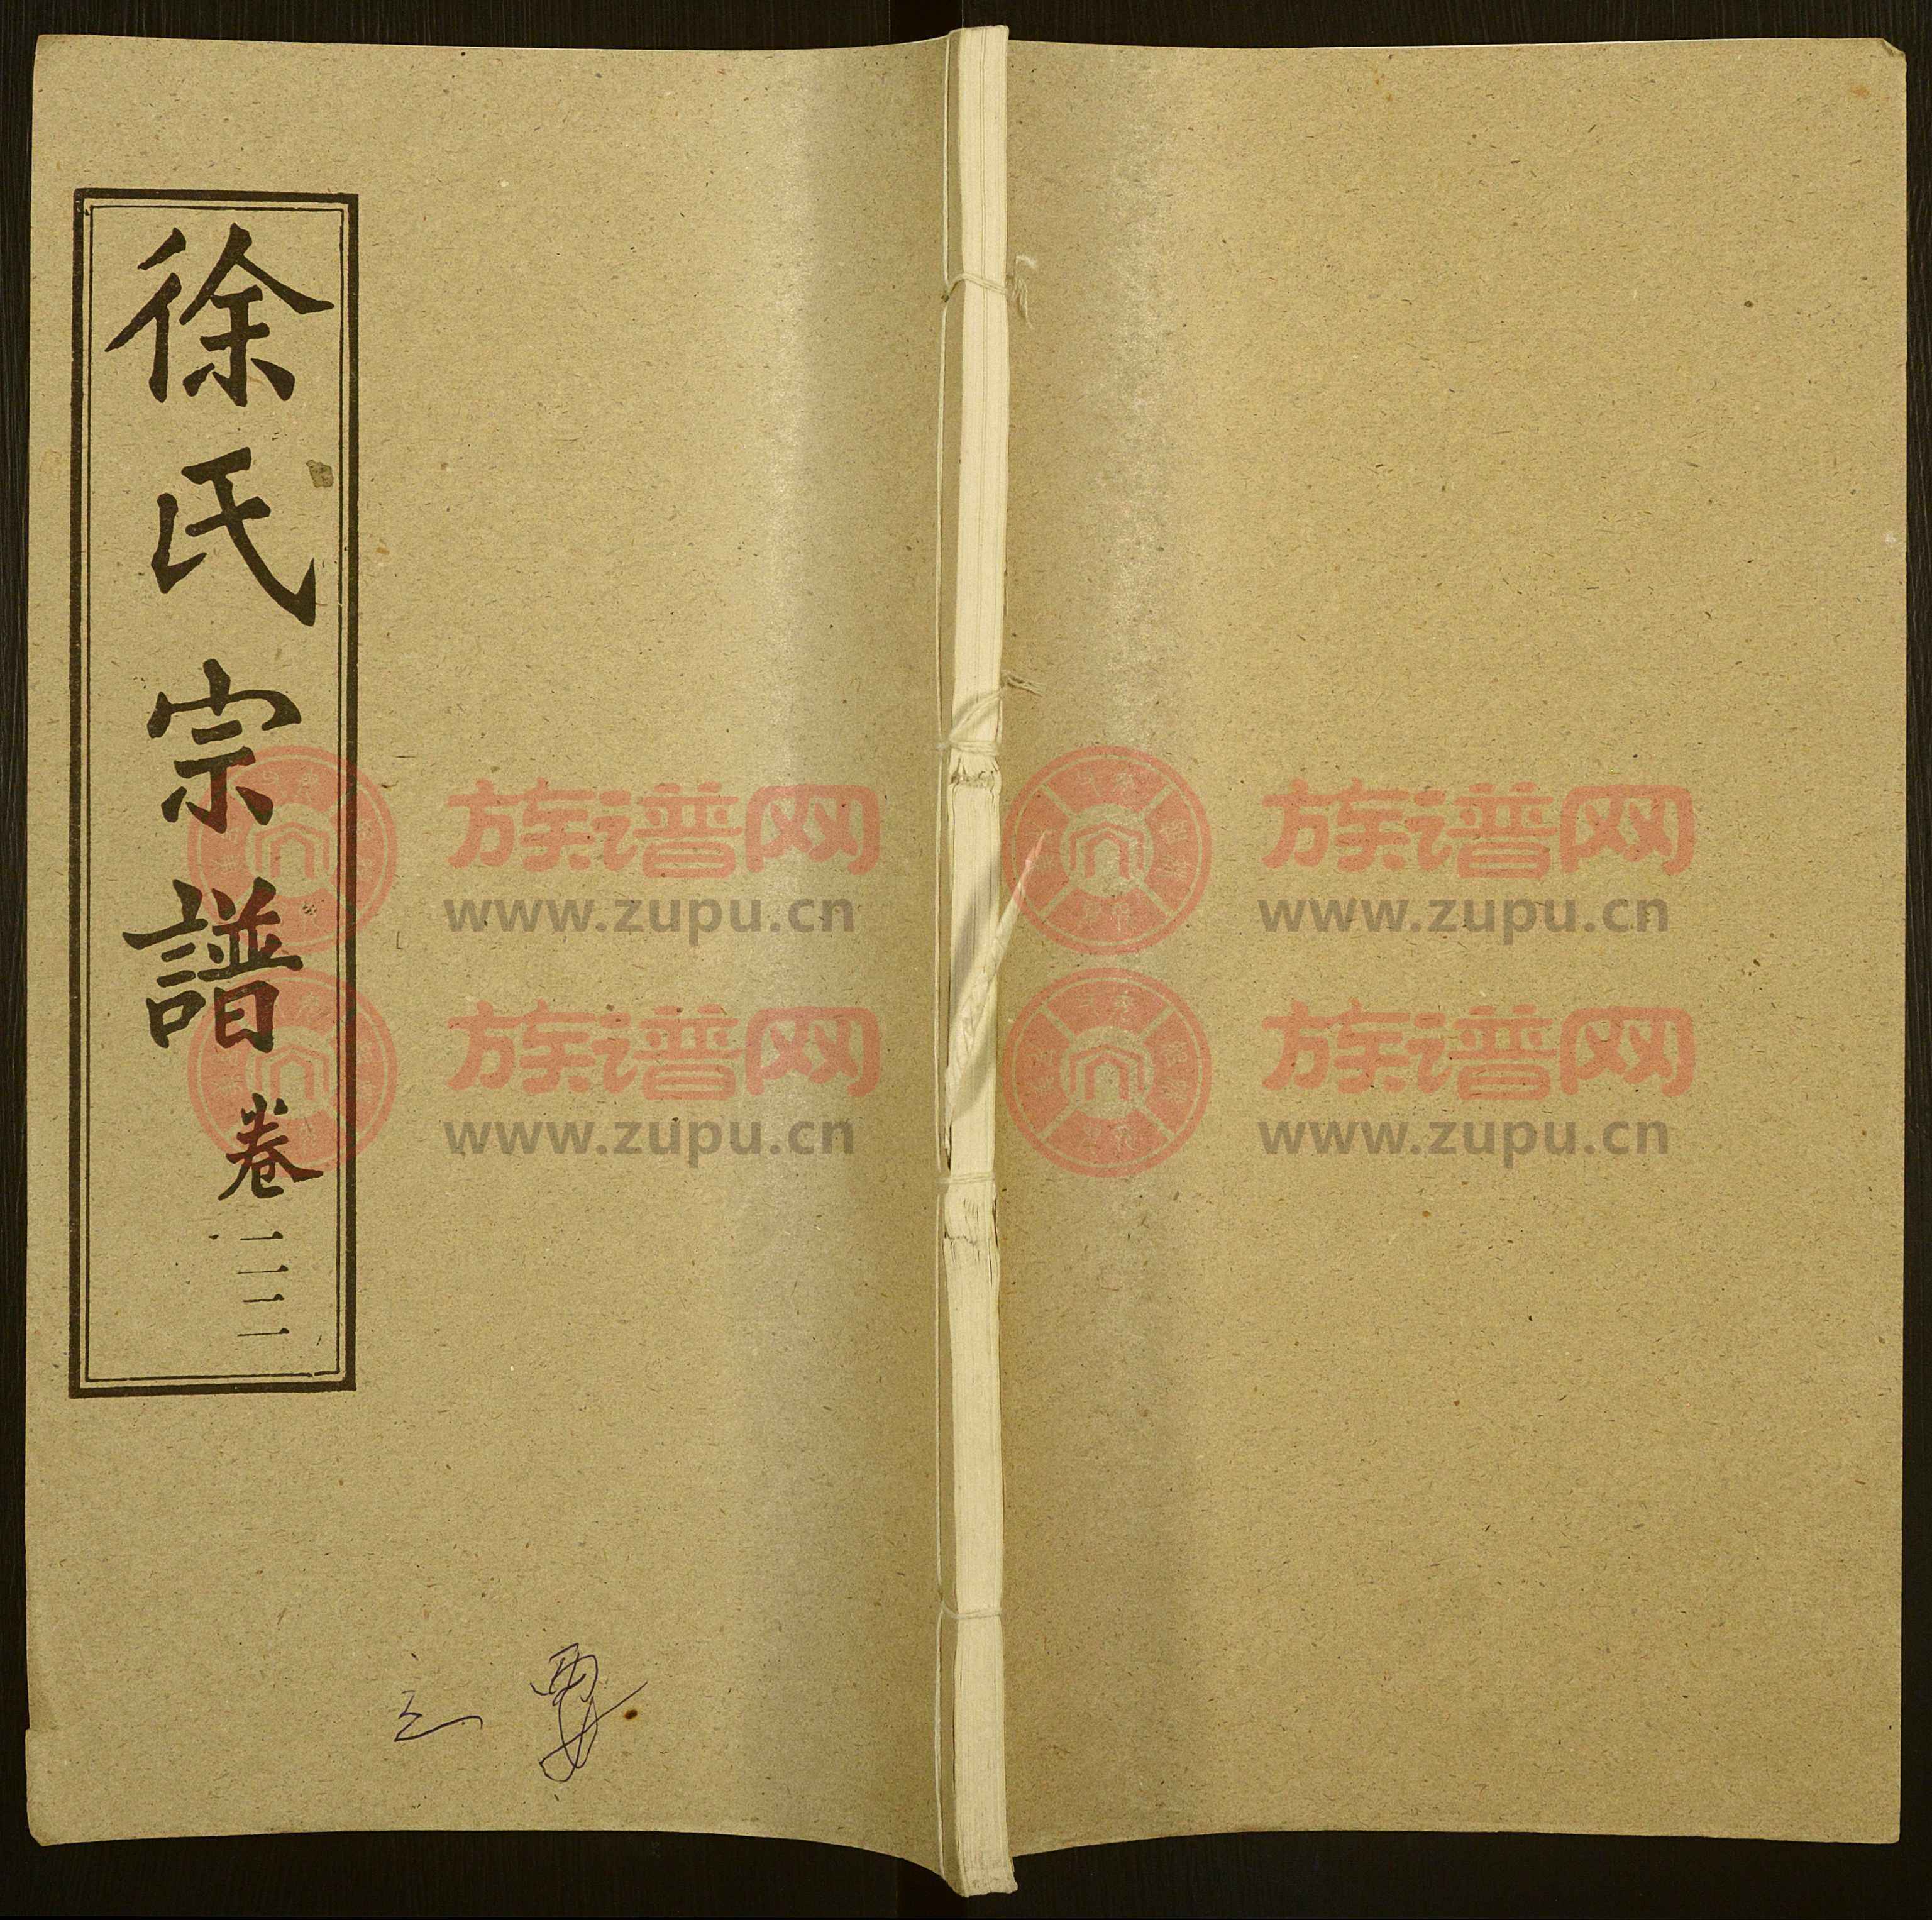 徐氏宗譜 卷二三
族谱网 族谱网
www.zupu.cn www.zupu.cn
族谱网 族谱网
www.zupu.cn www.zupu.cn